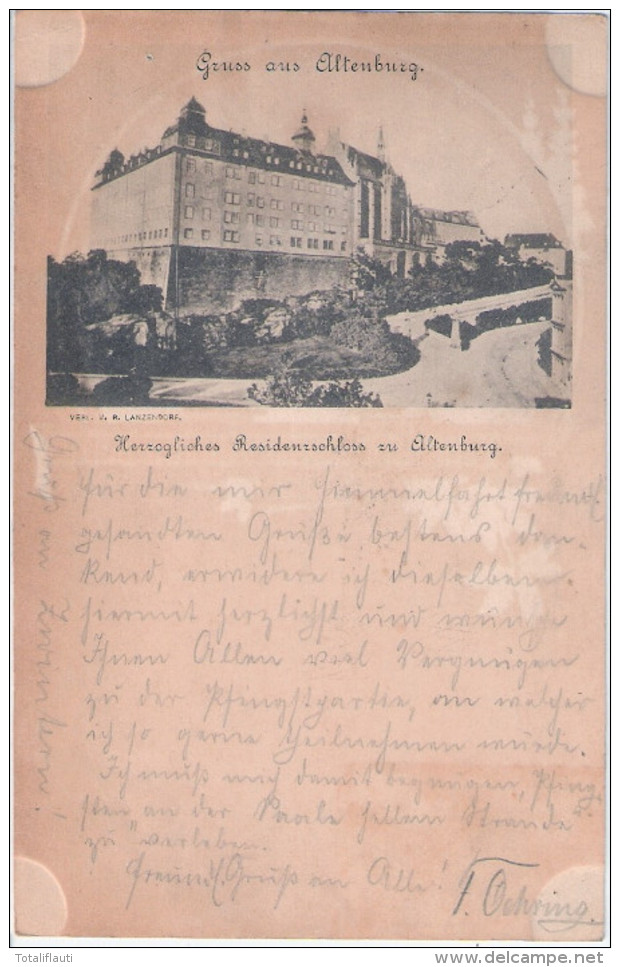 Gruss aus Altenburg.
VERL. V. R. LANZENDORF.
Herzogliches Residenzschloss zu Altenburg.
Für die mir Himmelfahrt freundl.
gesandten Grüße bestens dan-
kend, erwidere ich dieselben
hiermit herzlichst und wünsche
Ihnen Allen viel Vergnügen
zu der Pfingstpartie, an welcher
ich so gerne theilnehmen würde.
Ich muß mich damit begnügen, Pfing-
sten an der "Saale hellem Strande
zu" verleben.
Freundl. Gruß an Alle!
F. Oehring.
Gruß an
Totaliflauti
delcampe.net